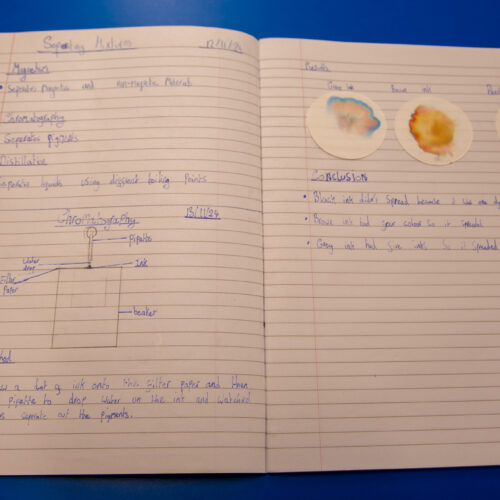 Seperating Mixtures
12/11/24
Magnetism
• Seperates Magnetic and non-magnetic Materials
Chromatography
Seperates pigments
Distillation
Seperates liquids using different boiling Points
Chromatography
13/11/24
pipette
Water
drop
Ink
Filter
Paper
beaker
a dot of ink onto the Filter paper and then
Pipette to drop water on the ink and watched
seperate out the pigments.
Results
Grey ink
Brown ink
Conclusion
• Black ink didn't Spread because it was one
• Brown ink had four colours so it spreaded
• Grey ink had five inks. So it spreaded